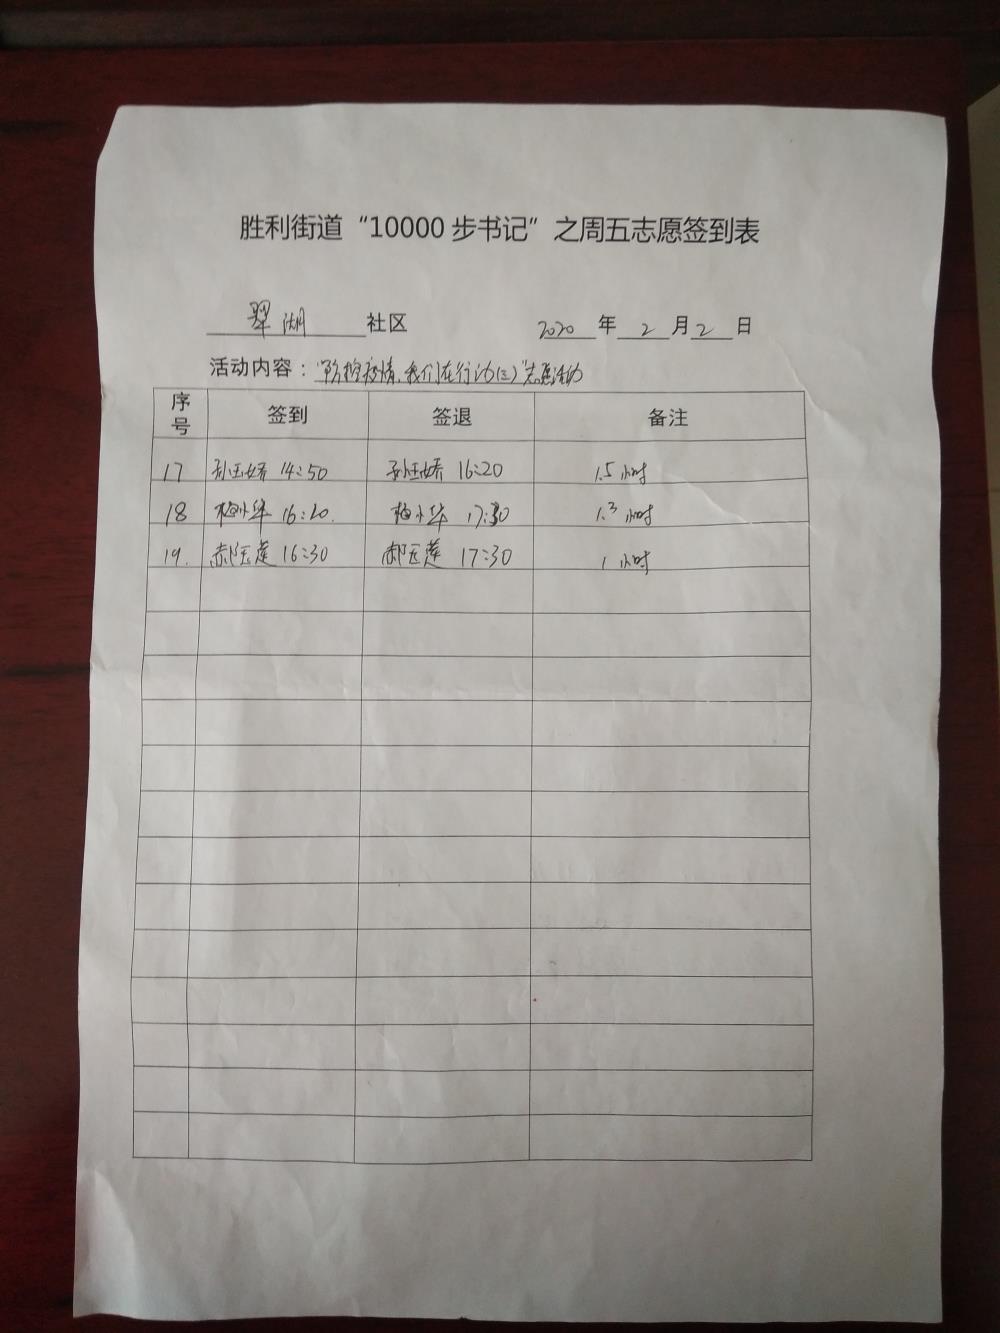 胜利街道“10000步书记”之周五志愿签到表
翠湖 社区 2020 年 2 月 2 日
活动内容：“防控疫情、我们在行动(三)”志愿活动
序号 签到 签退 备注
17 孙玉娇 14:50 孙玉娇 16:20 1.5小时
18 梅小华 16:20. 梅小华 17:30 1.3小时
19. 郝玉莲 16:30 郝玉莲 17:30 1小时